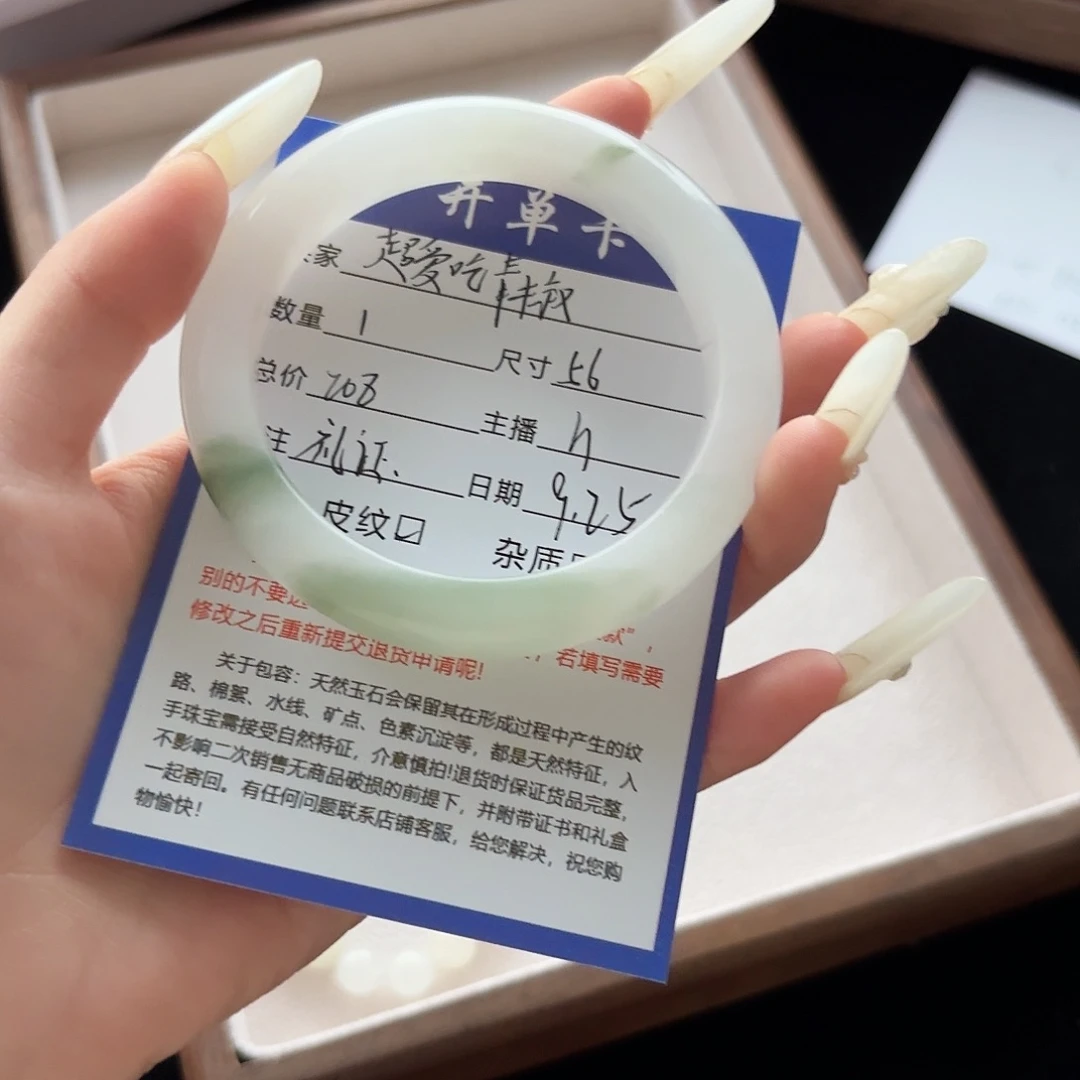 开单卡
家 超爱吃青椒
数量 1 尺寸 56
总价 708 主播 h
注 礼证. 日期 9.25
皮纹☑ 杂质
别的不要 款”，
修改之后重新提交退货申请呢! 若填写需要
关于包容：天然玉石会保留其在形成过程中产生的纹
路、棉絮、水线、矿点、色素沉淀等，都是天然特征，入
手珠宝需接受自然特征，介意慎拍!退货时保证货品完整，
不影响二次销售无商品破损的前提下，并附带证书和礼盒
一起寄回。有任何问题联系店铺客服，给您解决，祝您购
物愉快！